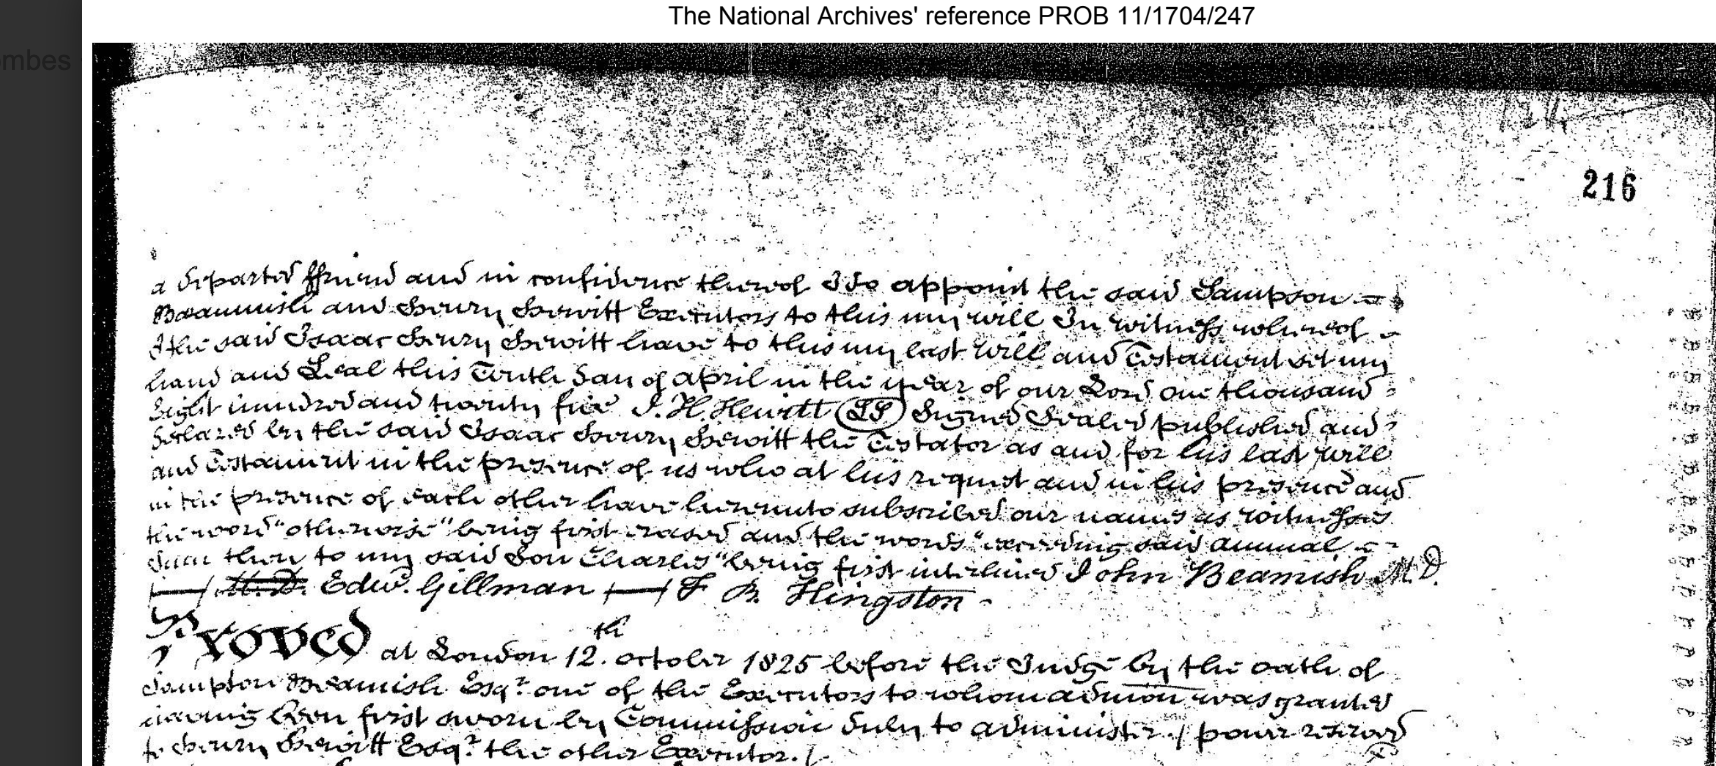 The National Archives' reference PROB 11/1704/247
mbes
216
a departed ffriend and in confidence thereof I do appoint the said Sampson
Beamish and Henry Hewitt Executors to this my will In witness whereof
I the said Isaac Henry Hewitt have to this my last Will and Testament set my
hand and Seal this Tenth day of April in the year of our Lord one thousand
Eight hundred and twenty five I. H. Hewitt (LS) Signed Sealed published and
declared by the said Isaac Henry Hewitt the Testator as and for his last will
and Testament in the presence of us who at his request and in his presence and
in the presence of each other have hereunto subscribed our names as witnesses
the word "otherwise" being first erased and the words "exceeding said annual
Sum then to my said Son Charles" being first interlined John Beamish M.D.
M.D. Edwd. Gillman F B. Hingston
Proved at London 12.th October 1825 before the Judge by the oath of
Sampson Beamish Esqr. one of the Executors to whom admon was granted
having been first sworn by Commission duly to administer / power reserved
to Henry Hewitt Esqr. the other Executor. /